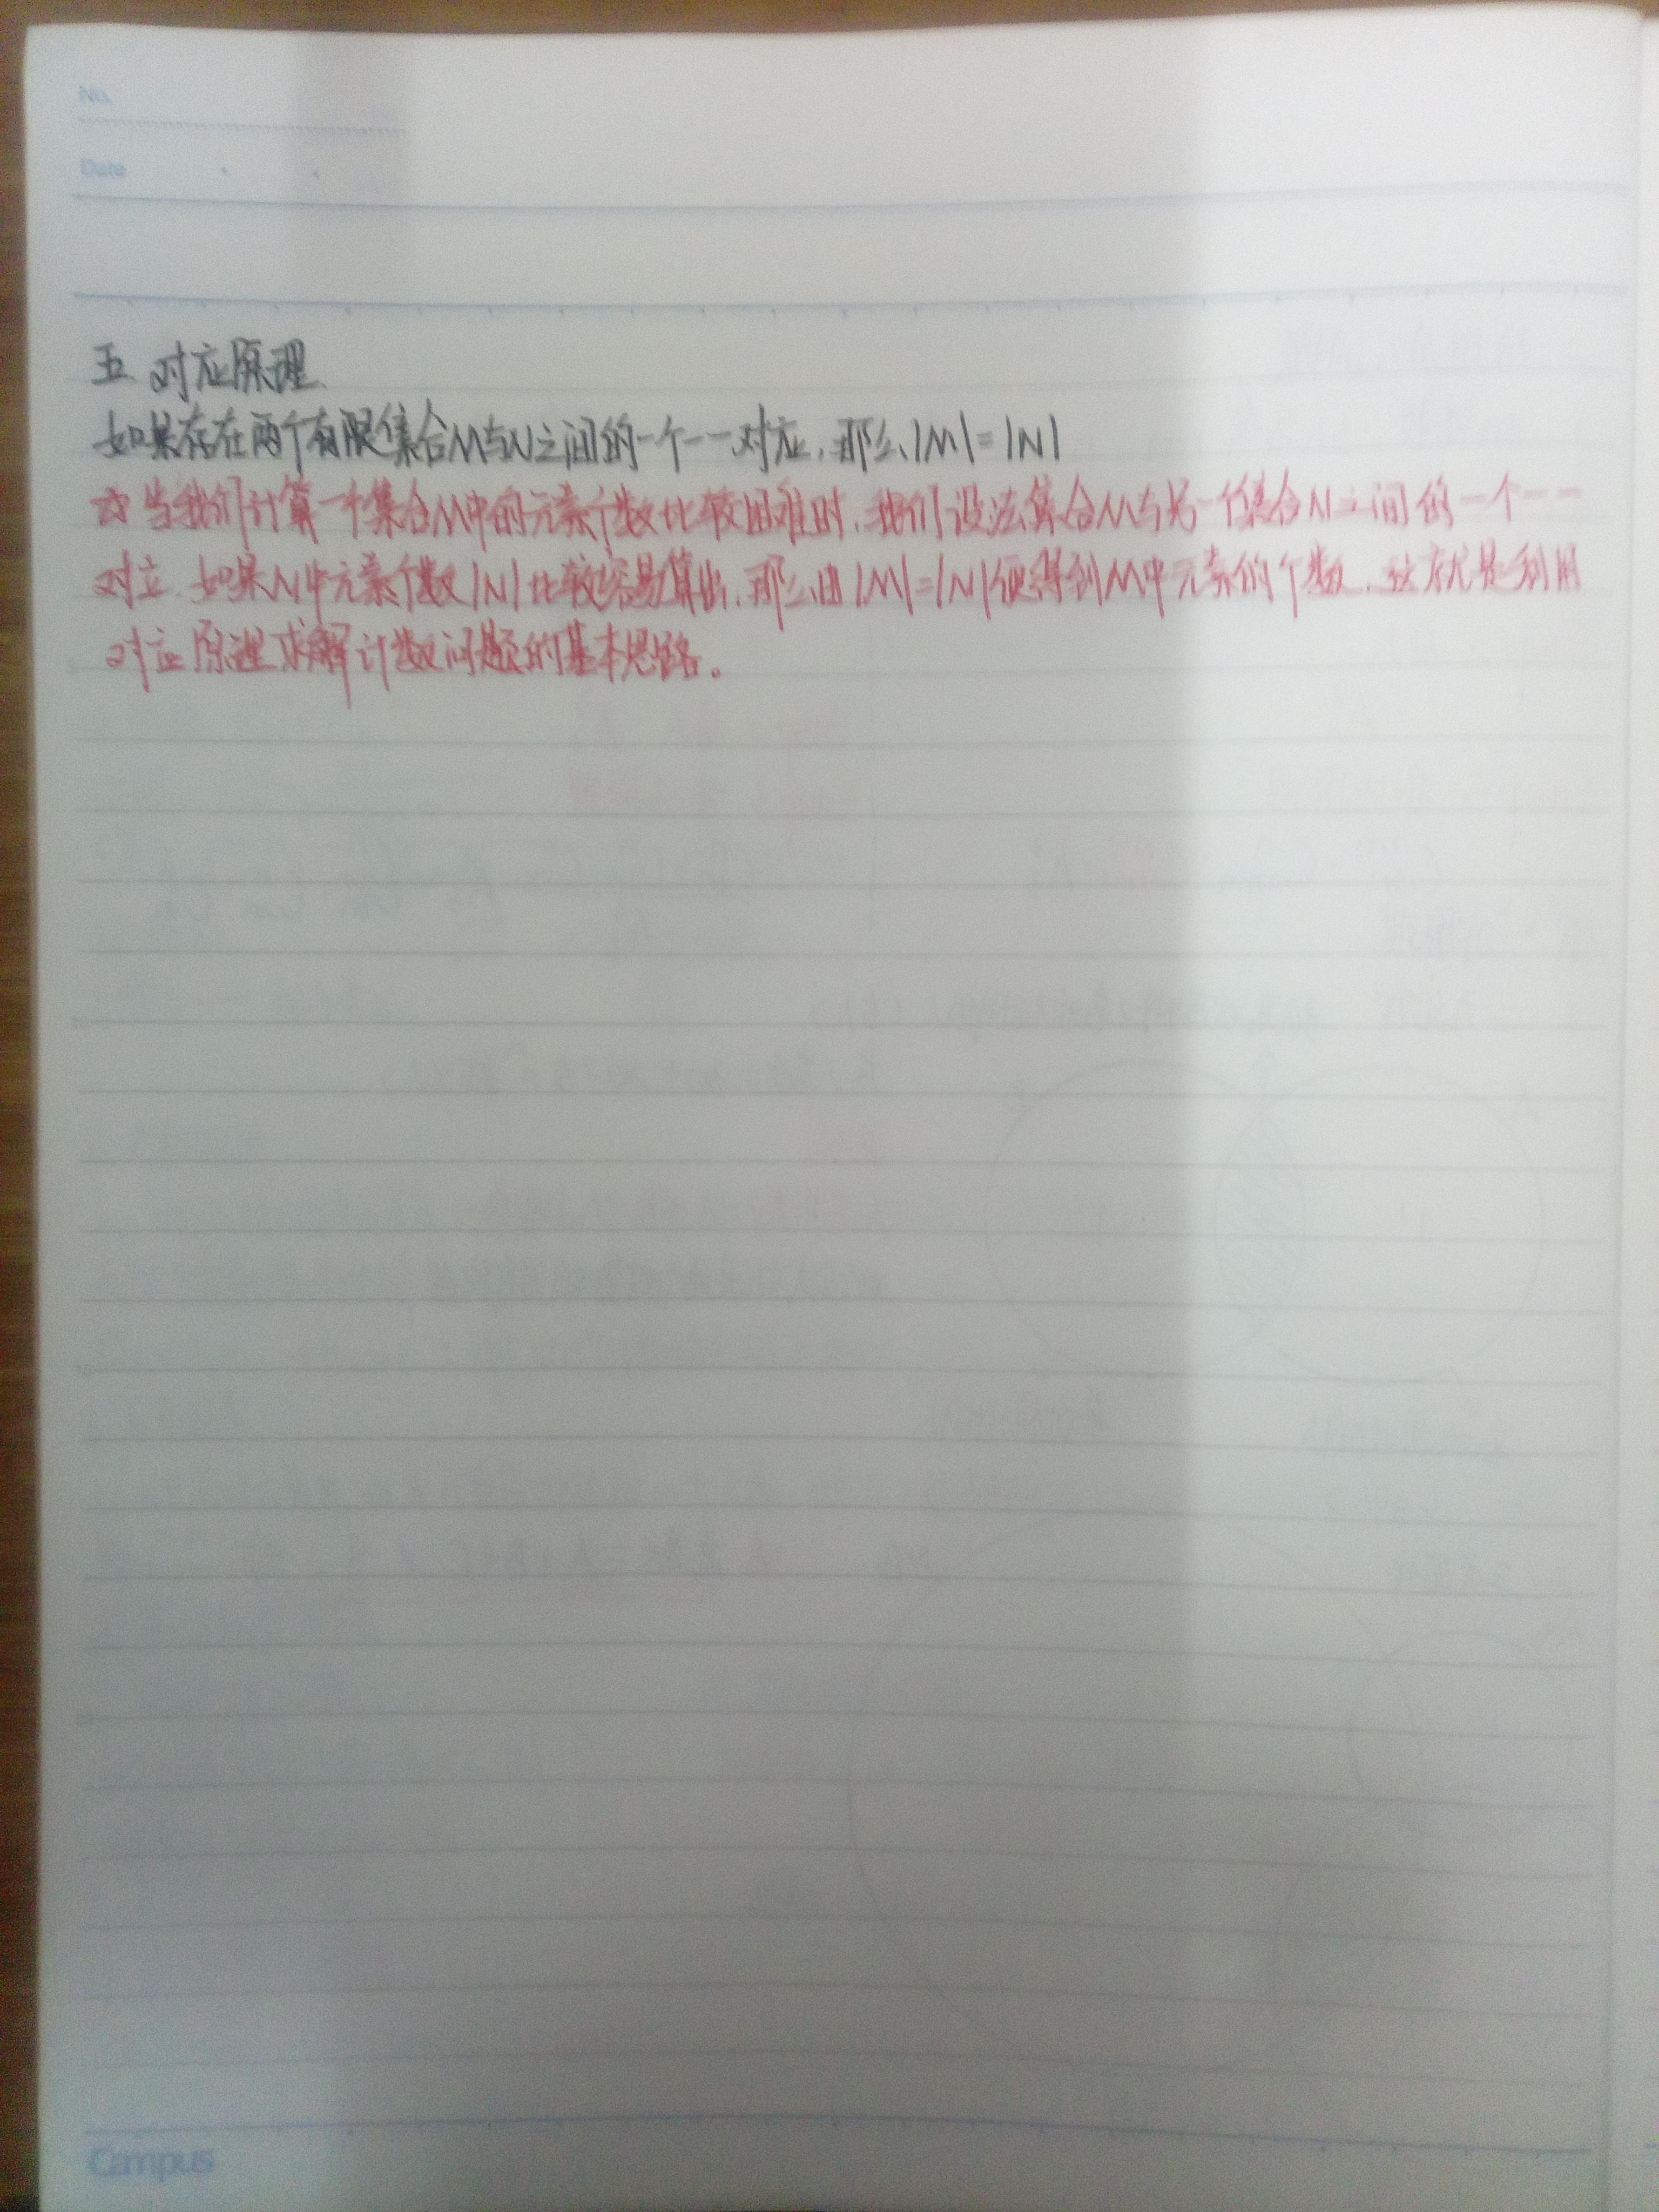 No.
Date
五. 对应原理.
如果存在两个有限集合M与N之间的一个一一对应,那么|M|=|N|
☆当我们计算一个集合M中的元素个数比较困难时,我们设法集合M与另一个集合N之间的一个一一
对立.如果N中元素个数|N|比较容易算出,那么由|M|=|N|便得到M中元素的个数.这就是利用
对应原理求解计数问题的基本思路。
Campus